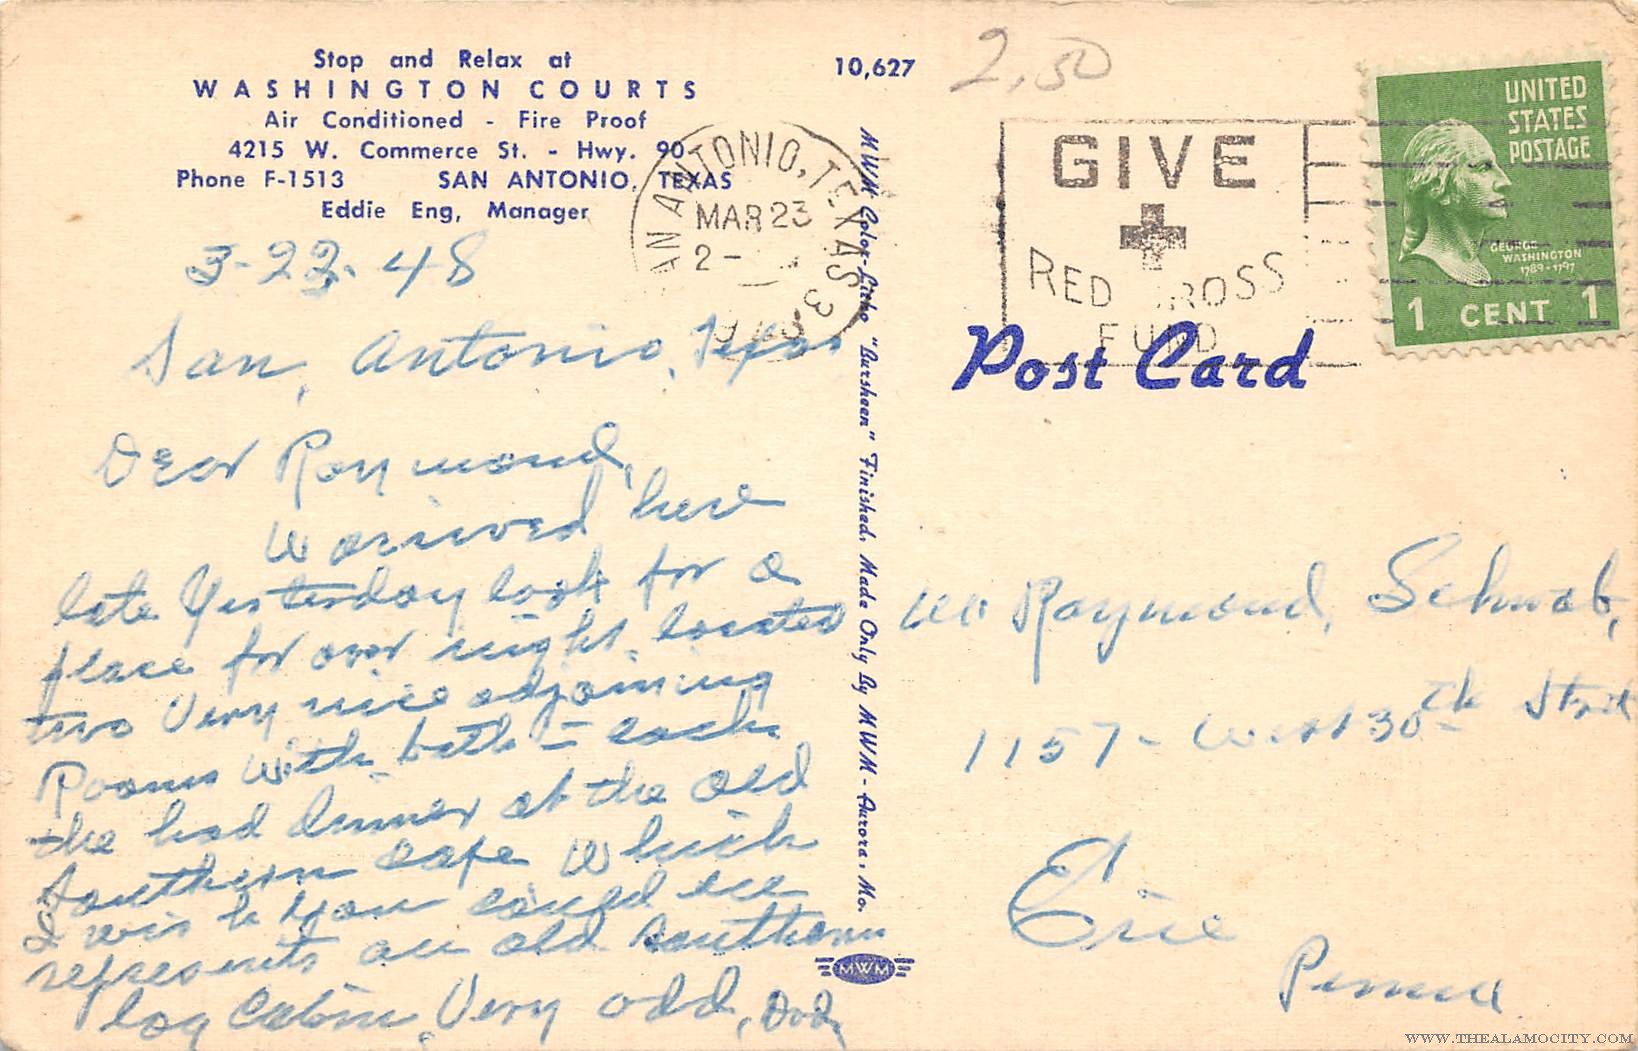 Stop and Relax at
WASHINGTON COURTS
Air Conditioned - Fire Proof
4215 W. Commerce St. - Hwy. 90
Phone F-1513 SAN ANTONIO, TEXAS
Eddie Eng, Manager
3-22-48
San, Antonio, Texas
Dear Raymond,
W arrived here
late Yesterday look for a
place for over night, located
two Very nice adjoining
Rooms with bath - each
the had dinner at the old
Southern cafe Which
I wish you could see
represents an old southern
log Cabin, Very odd, Dad,
10,627
MWM Color-Litho "Bursheen" Finished, Made Only By MWM - Aurora, Mo.
MWM
2,50
SAN ANTONIO, TEXAS 3
MAR 23
2-
GIVE
RED CROSS
FUND
UNITED
STATES
POSTAGE
GEORGE
WASHINGTON
1789-1797
1 CENT 1
Post Card
Mr Raymond, Schwab,
1157 - West 30th Street
Erie
Penna
WWW.THEALAMOCITY.COM